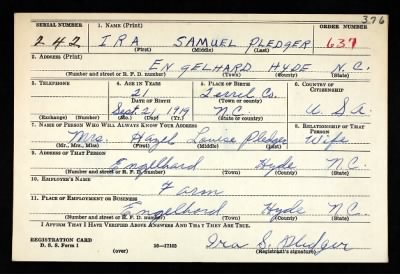 376
SERIAL NUMBER 1. NAME (Print) ORDER NUMBER
242 IRA SAMUEL PLEDGER 637
(First) (Middle) (Last)
2. ADDRESS (Print)
ENGELHARD HYDE N.C.
(Number and street or R. F. D. number) (Town) (County) (State)
3. TELEPHONE 4. AGE IN YEARS 5. PLACE OF BIRTH 6. COUNTRY OF CITIZENSHIP
21 Terrel Co.
DATE OF BIRTH (Town or county)
Sept. 21, 1919 N.C. U.S.A.
(Exchange) (Number) (Mo.) (Day) (Yr.) (State or country)
7. NAME OF PERSON WHO WILL ALWAYS KNOW YOUR ADDRESS 8. RELATIONSHIP OF THAT PERSON
Mrs. Hazel Louise Pledger Wife
(Mr., Mrs., Miss) (First) (Middle) (Last)
9. ADDRESS OF THAT PERSON
Engelhard Hyde N.C.
(Number and street or R. F. D. number) (Town) (County) (State)
10. EMPLOYER'S NAME
Farm
11. PLACE OF EMPLOYMENT OR BUSINESS
Engelhard Hyde N.C.
(Number and street or R. F. D. number) (Town) (County) (State)
I AFFIRM THAT I HAVE VERIFIED ABOVE ANSWERS AND THAT THEY ARE TRUE.
REGISTRATION CARD
D. S. S. Form 1 (over) 16—17105 Ira S. Pledger
(Registrant's signature)